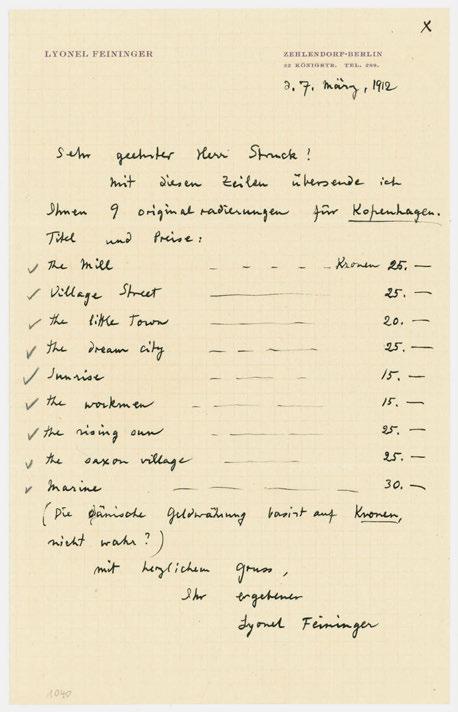 X
LYONEL FEININGER
ZEHLENDORF-BERLIN
32 KÖNIGSTR. TEL. 289.
d. 7. März, 1912
Sehr geehrter Herr Struck!
Mit diesen Zeilen übersende ich
Ihnen 9 original radierungen für Kopenhagen.
Titel und Preise:
✓ the Mill – – – – – Kronen 25. —
✓ Village Street ——— 25. —
✓ the little Town ——— 20. —
✓ the dream city — — — — 25. —
✓ Sunrise — — — — 15. —
✓ the workmen – — — — 15. —
✓ the rising sun — — — 25. —
✓ the saxon village ——— 25. —
✓ Marine — — — — 30. —
(Die Dänische Geldwährung basist auf Kronen,
nicht wahr?)
mit herzlichem Gruss,
Ihr ergebener
Lyonel Feininger
1040